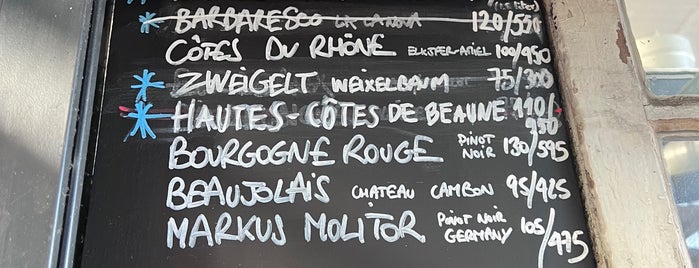 (1 liter)
BARBARESCO LA CANOVA 120/550
CÔTES DU RHÔNE 100/450
ZWEIGELT WEIXELBAUM 75/300
HAUTES-CÔTES DE BEAUNE 110/
550
BOURGOGNE ROUGE PINOT NOIR 130/595
BEAUJOLAIS CHÂTEAU CAMBON 95/425
MARKUS MOLITOR PINOT NOIR GERMANY 105/475